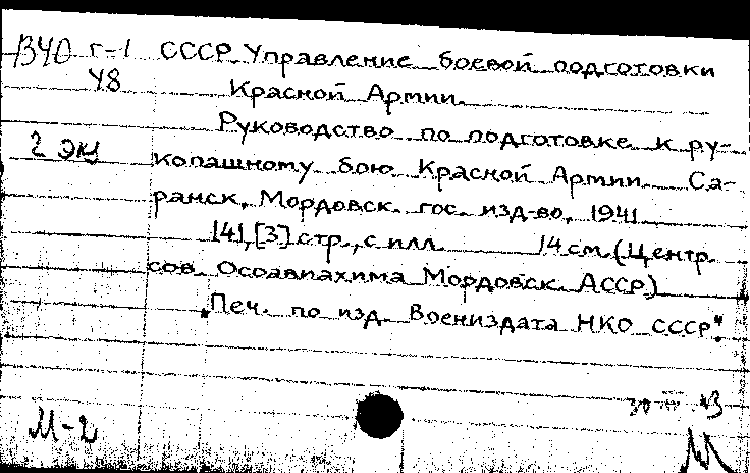 В40 г-1 СССР Управление боевой подготовки
У8 Красной Армии.
Руководство по подготовке к ру-
2 экз копашному бою Красной Армии. Са-
ранск, Мордовск. гос. изд-во, 1941
141,[3] стр., с илл. 14 см. (Центр.
сов. Осоавиахима Мордовск. АССР.)
„Печ. по изд. Воениздата НКО СССР".
М-2